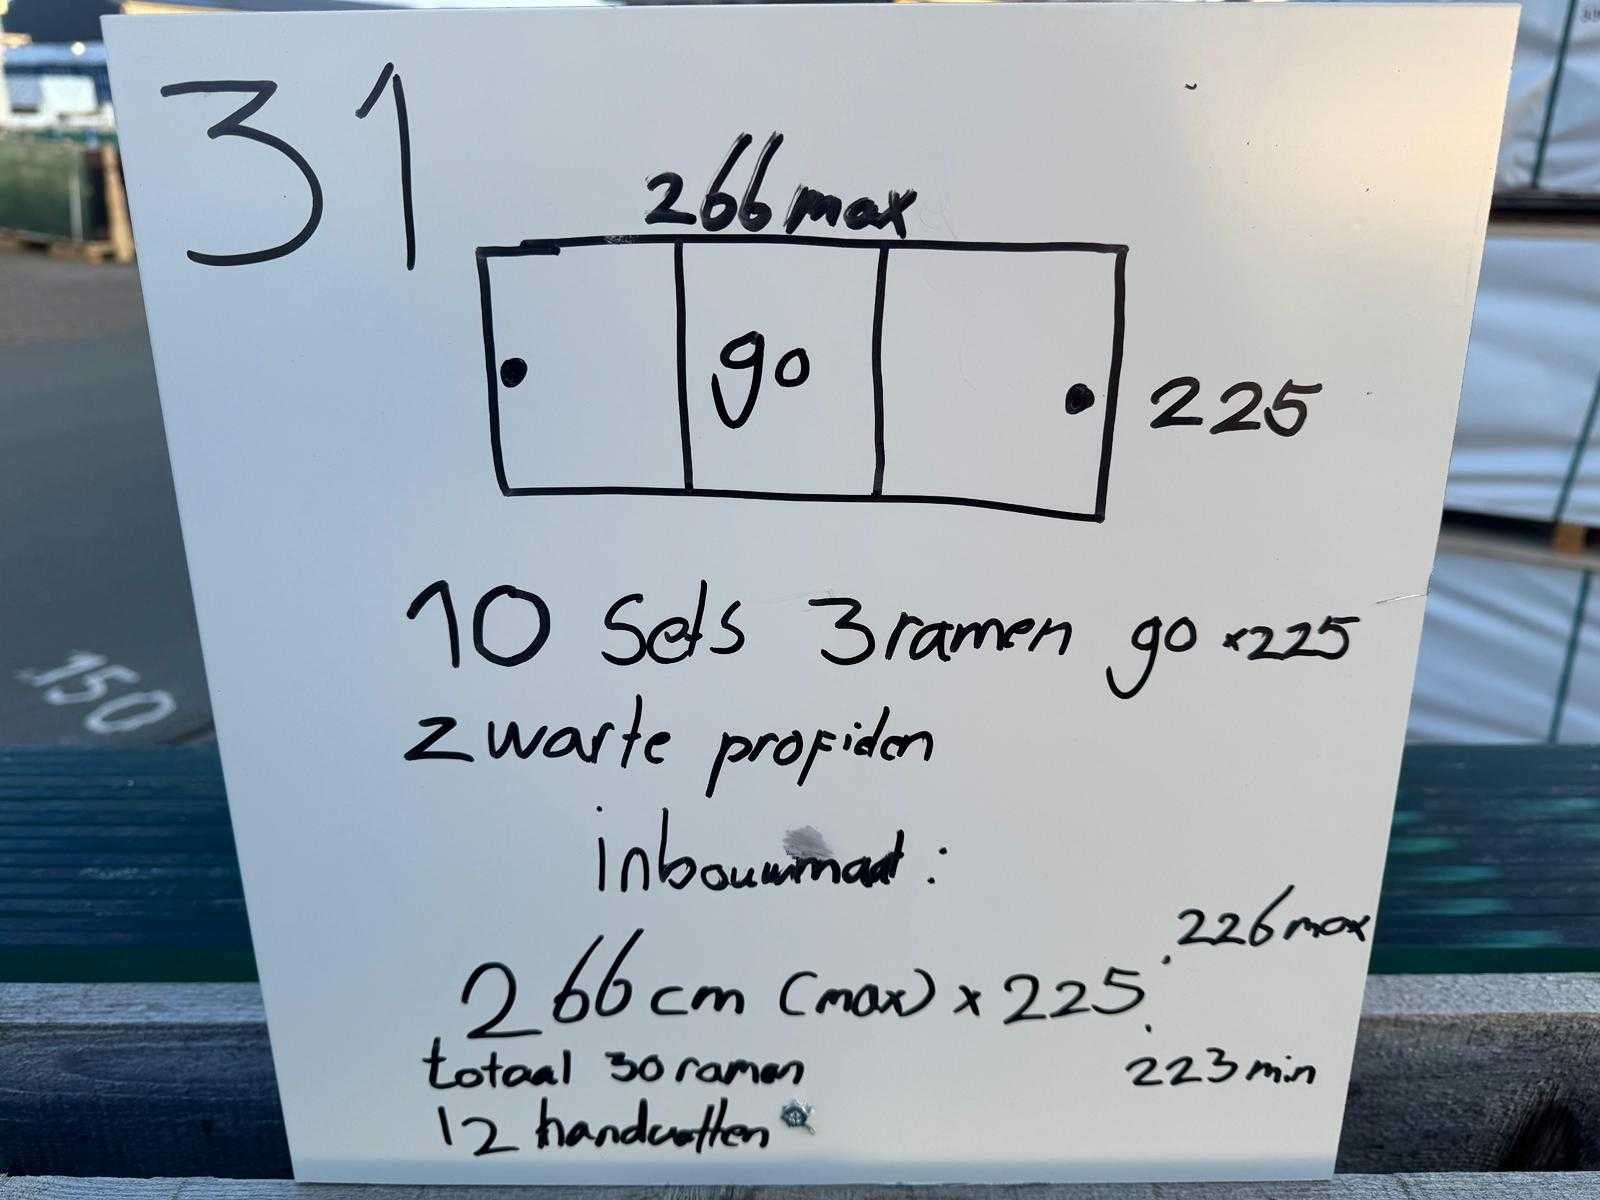 31
266 max
90
225
10 Sets 3 ramen 90 x 225
zwarte profielen
inbouwmaat :
226 max
266 cm (max) x 225
totaal 30 ramen
223 min
12 handvatten
150